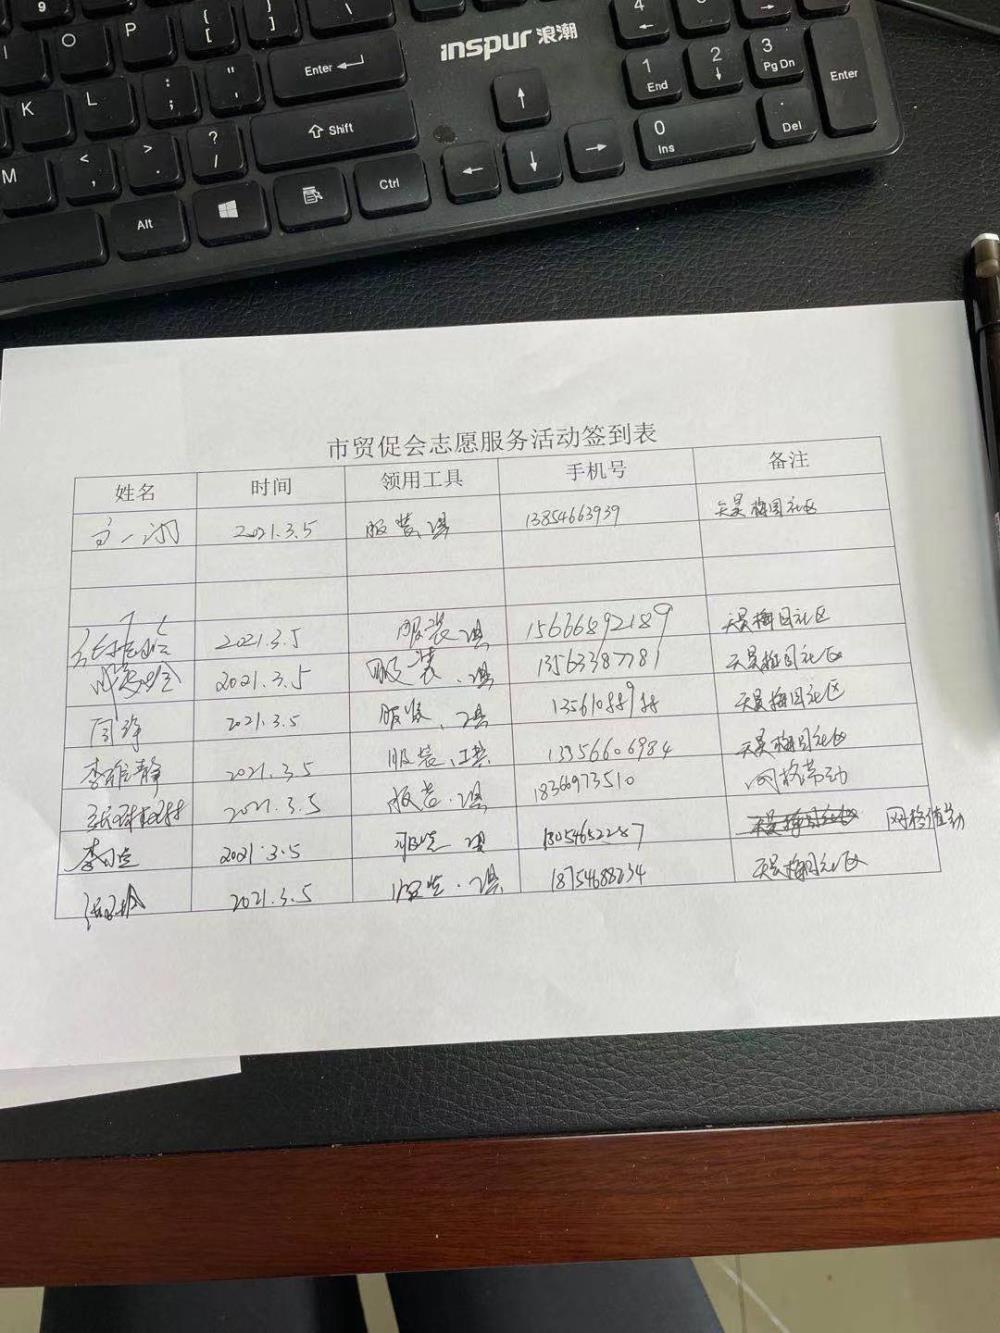 9
O P { [ } ] | \
4 ←
→
inspur 浪潮
K L : ; " ' Enter
1 End 2 ↓ 3 Pg Dn Enter
M < , > . ? / Shift
↑
0 Ins . Del
Alt Ctrl ← ↓ →
市贸促会志愿服务活动签到表
姓名 时间 领用工具 手机号 备注
2021.3.5 服装、工具 13854663939 天昊梅园社区
2021.3.5 服装、工具 15666892189 天昊梅园社区
2021.3.5 服装、工具 13563387781 天昊梅园社区
周静 2021.3.5 服装、工具 13561088988 天昊梅园社区
李雅静 2021.3.5 服装、工具 13356606984 天昊梅园社区
2021.3.5 服装、工具 18366973510 网格劳动
2021.3.5 服装 工具 13054652287 网格值勤
2021.3.5 服装、工具 18754688234 天昊梅园社区